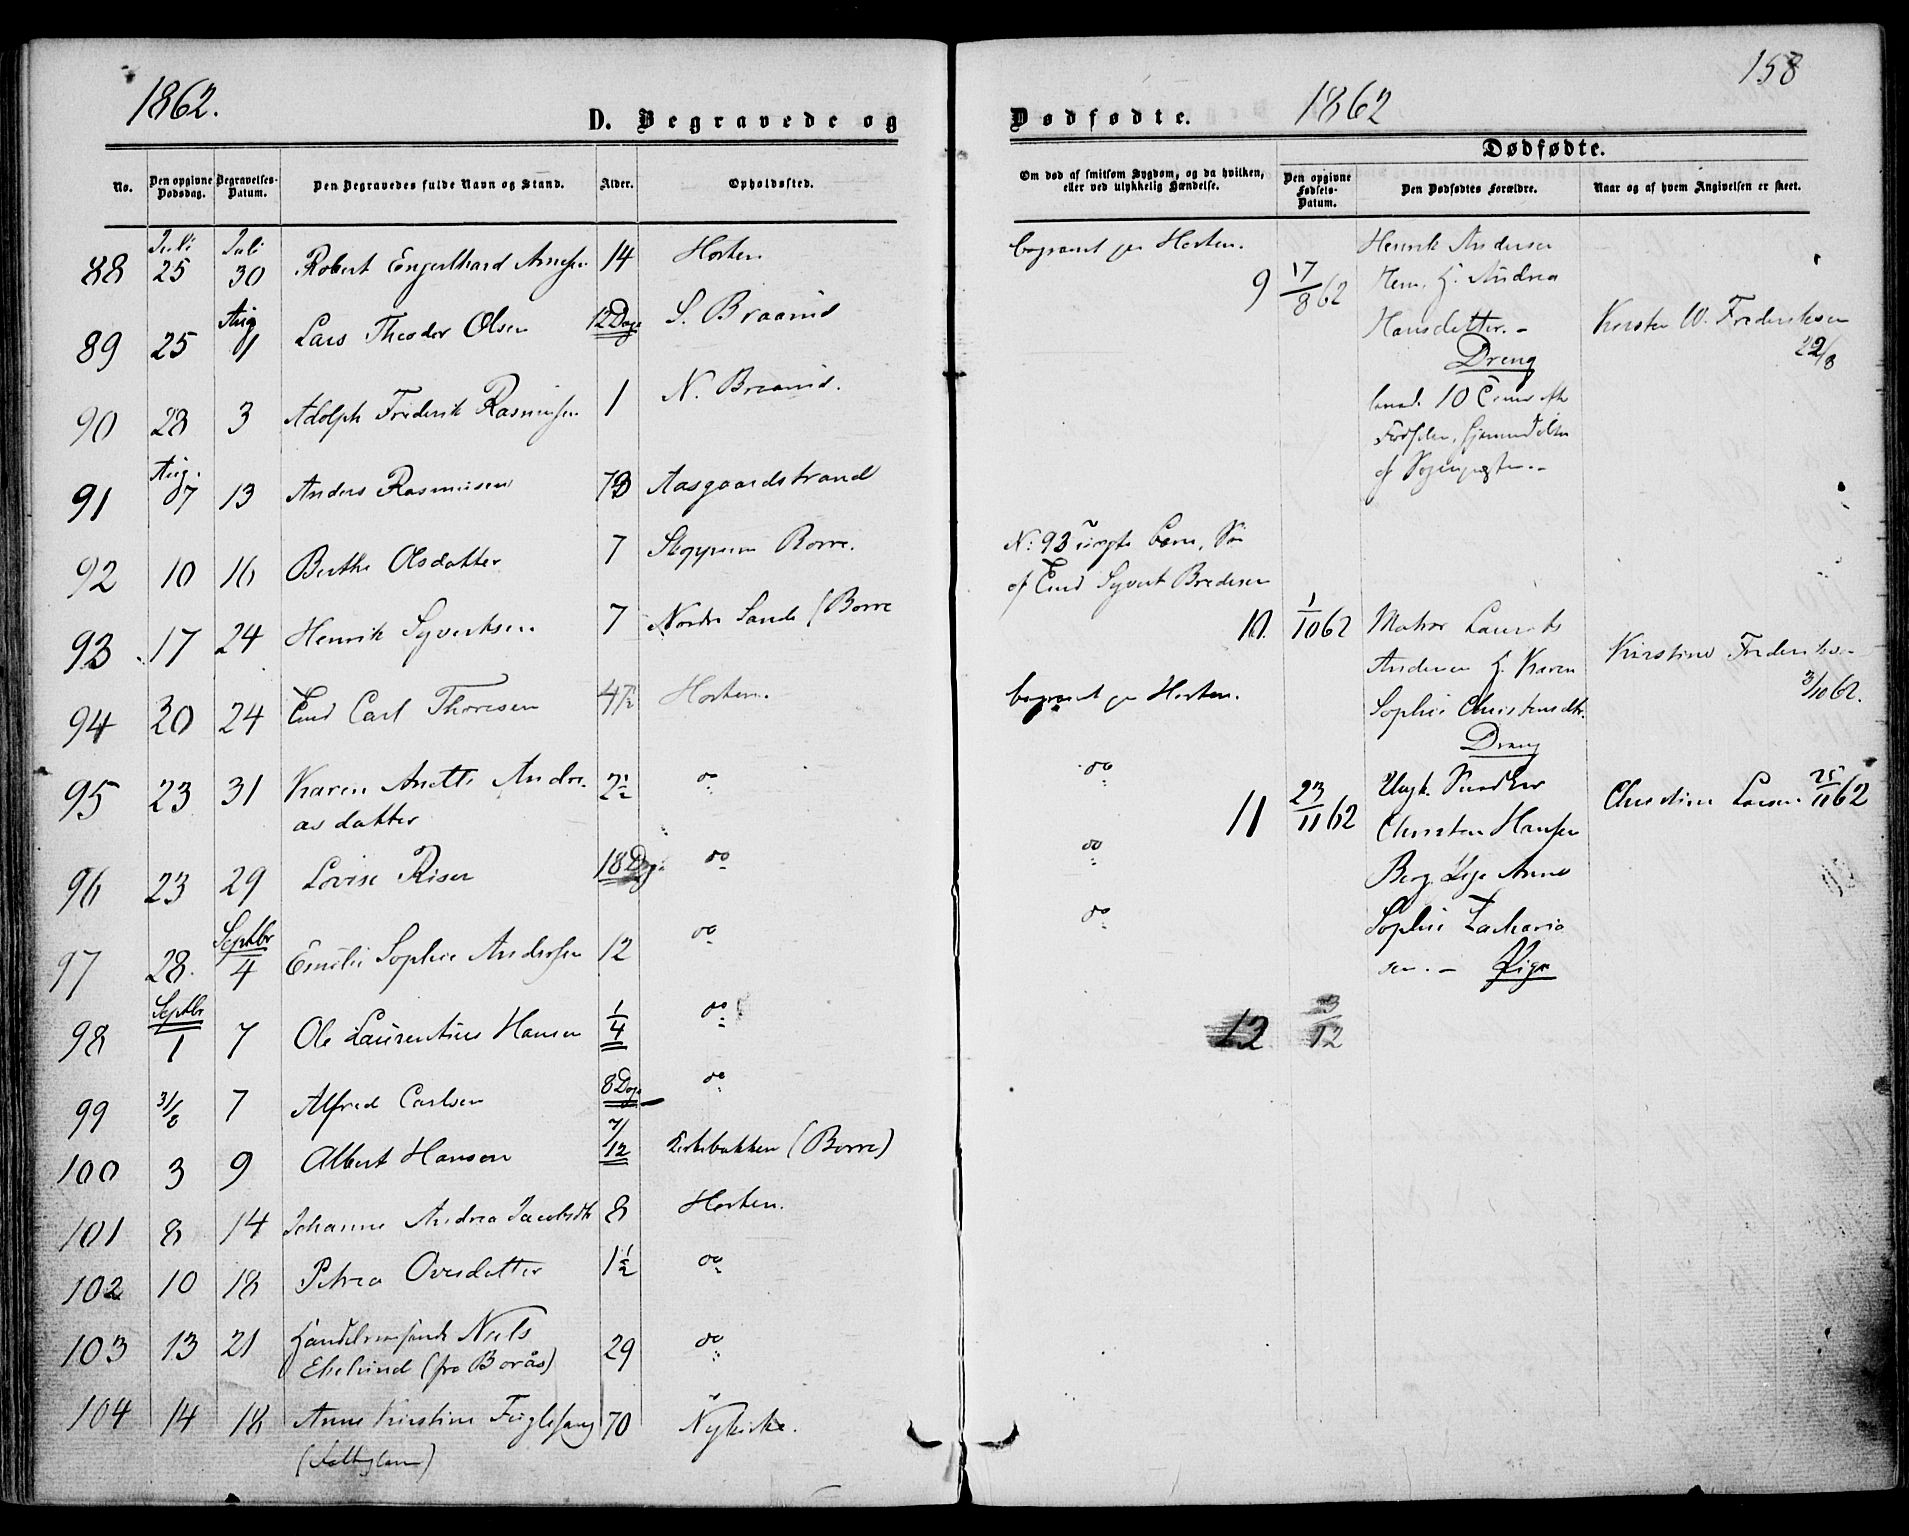 1862.
D. Begravede og
No.
Den opgivne Dødsdag.
Begravelses-Datum.
Den Begravedes fulde Navn og Stand.
Alder.
Opholdssted.
88 Juli 25 Juli 30 Robert Engelhard 14 Horten
89 25 Aug 1 Lars Theodor Olsen 12 Dage S. Braarud
90 28 3 Adolph Frederik Rasmussen 1 N. Braarud.
91 Aug. 07 13 Anders Rasmussen Aasgaardstrand
92 10 16 Berthe Olsdatter 7 Borre.
93 17 24 Henrik Syvertsen 7 Nordre Sande (Borre
94 20 24 Emd Carl Thoresen 4½ Horten.
95 23 31 Karen Anette Andre- 2½ do
as datter
96 23 29 Lovise Riser 18 Dage do
97 28. Septbr 4 Emilie Sophie Andersen 12 do
98 Septbr 1 7 Ole Laurentius Hansen 1/4 do
99 31/8 7 Alfred Carlsen 8 Dage do
100 3 9 Albert Hansen 7/12 Kirkebakken (Borre)
101 8 14 Johanne Andrea Jacobsdtr 8 Horten.
102 10 18 Petrea Ovesdatter 1½ do
103 13 21 Niels 29 do
(fra Borås)
104 14 18 Anne Kirstine Fuglesang 70 Nykirke.
158
Dødfødte.
1862
Om død af smitsom Sygdom, og da hvilken,
eller ved ulykkelig Hændelse.
Dødfødte.
Den opgivne Fødsels-Datum.
Den Dødfødtes Forældre.
Naar og af hvem Angivelsen er skeet.
begravet paa Horten.
9 17/8 62 Henrik Andersen
Andrea
Hansdatter. -
Dreng
Kirsten W. Frederiksen
22/8
10
No: 93 uægte Barn,
af Emd Syvert Bredesen
10. 1/10 62 Matros Laurits
Andersen Karen
Sophie Christensdtr.
Dreng
Kirstine Frederiksen
3/10 62.
begravet paa Horten.
do
do
do
11 23/11 62 Ungk. Snedker
Christen Hansen
Berg, Pige Anne
Sophie Zacharia
sen. - Pige
Christine Larsen 25/11 62
12 3/12